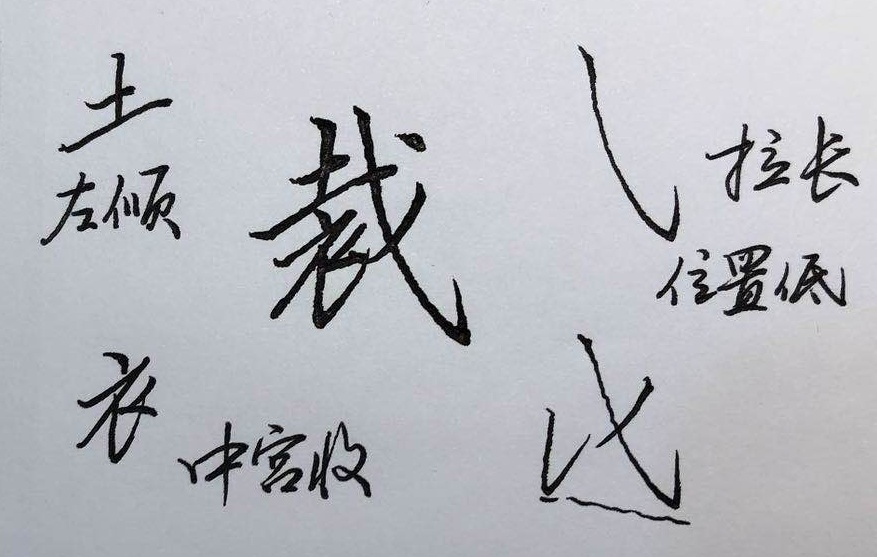 土
左倾
裁
拉长
位置低
衣
中宫收